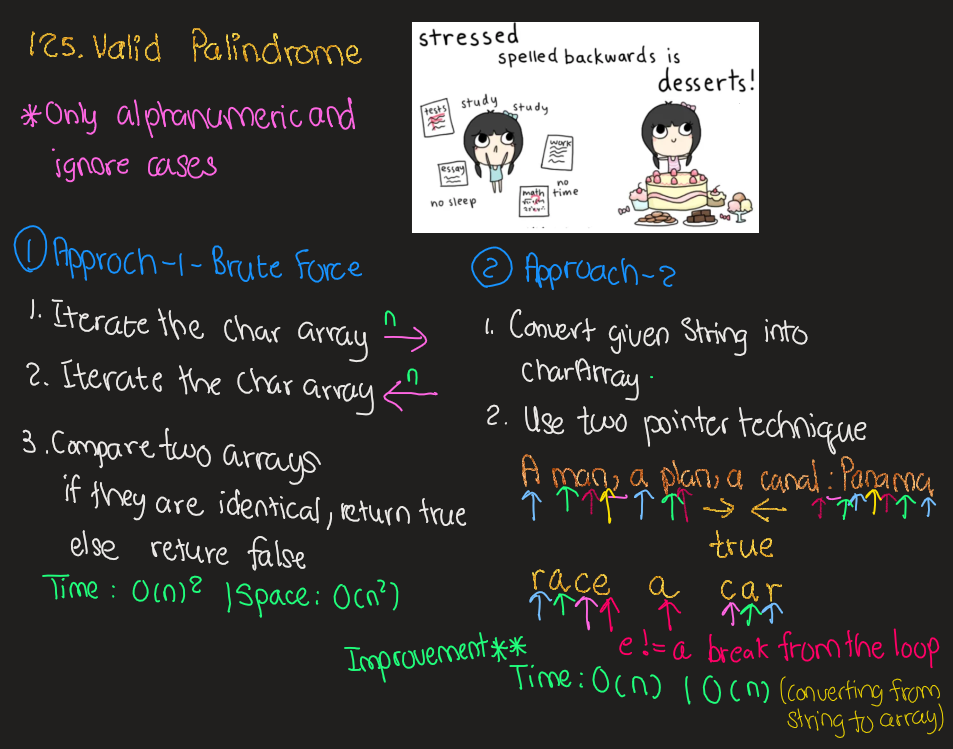 125. Valid Palindrome
*Only alphanumeric and
ignore cases
stressed
spelled backwards is
desserts!
tests
study
study
work
essay
no sleep
math
no
time
① Approch-1-Brute Force
1. Iterate the char array n
2. Iterate the char array n
3. Compare two arrays
if they are identical, return true
else reture false
Time: O(n)² | Space: O(n²)
② Approach-2
1. Convert given String into
charArray.
2. Use two pointer technique
A man, a plan, a canal: Panama
true
race a car
e != a break from the loop
Improvement**
Time: O(n) | O(n) (converting from
string to array)